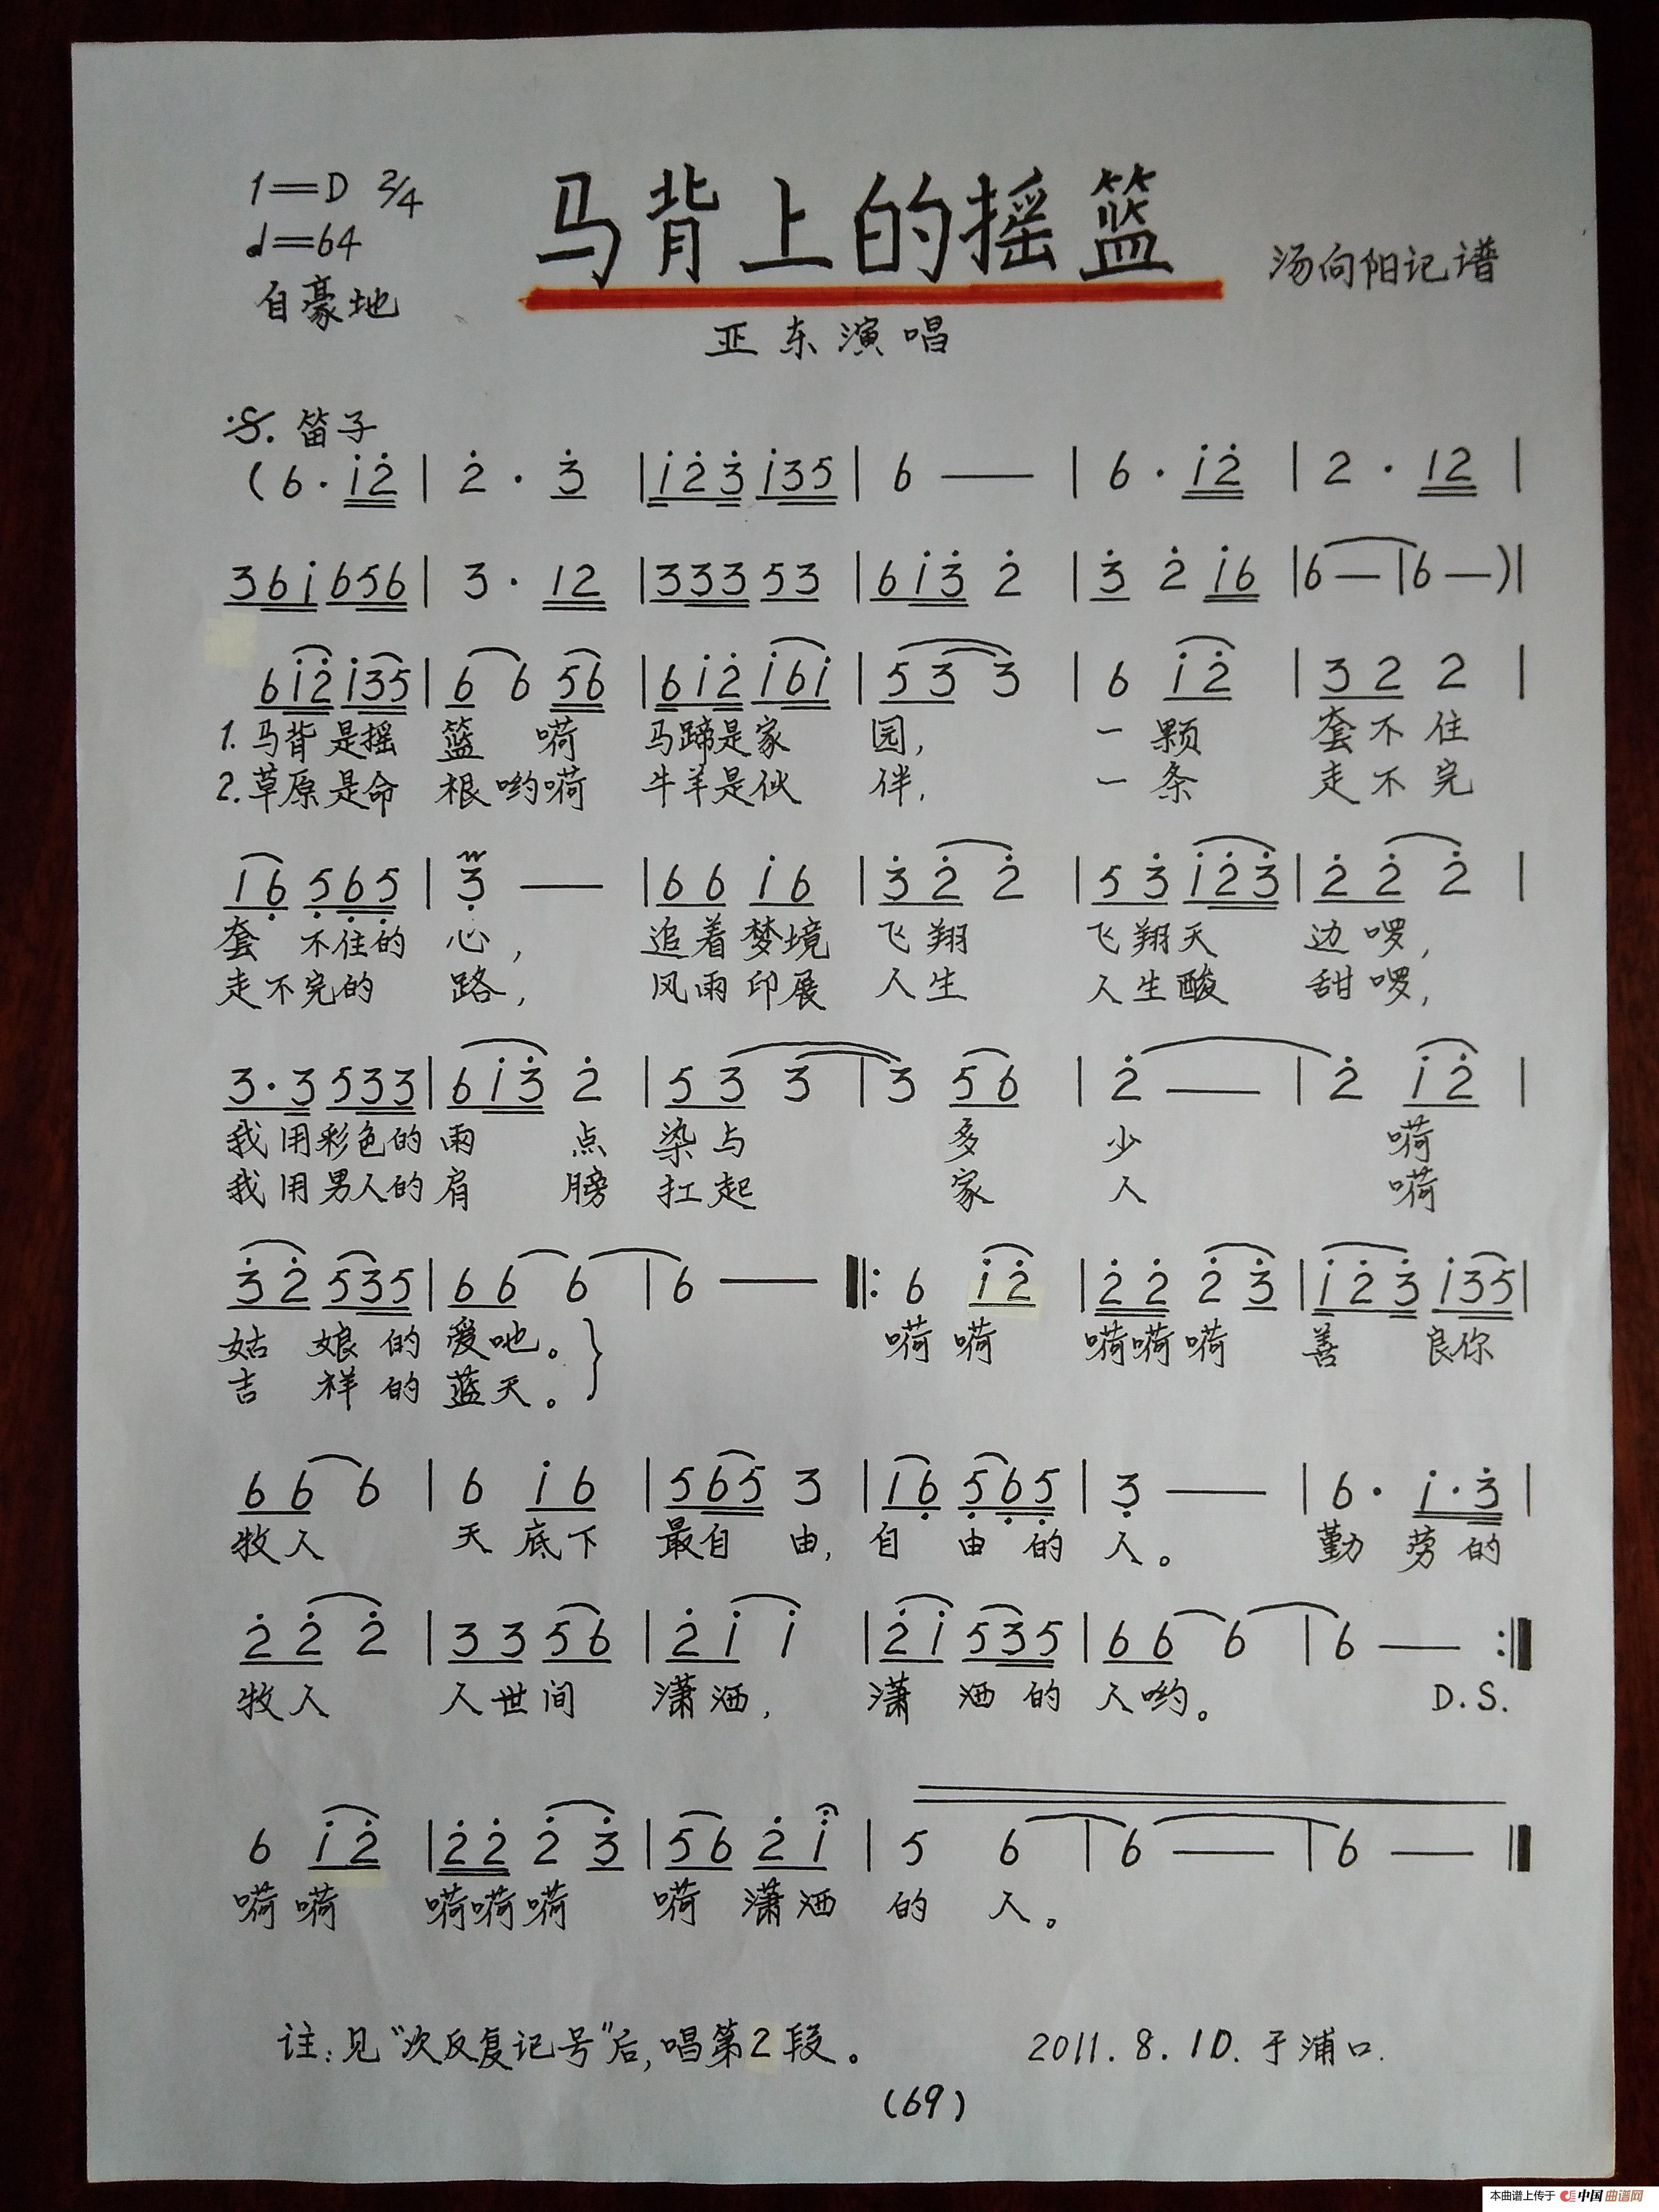 1=D 2/4
马背上的摇篮
♩=64
汤向阳记谱
自豪地
亚东演唱
𝄋. 笛子
( 6 · i̇ 2̇ | 2̇ · 3̇ | i̇ 2̇ 3̇ i̇ 3 5 | 6 — | 6 · i̇ 2̇ | 2 · 1 2 |
3 6 i̇ 6 5 6 | 3 · 1 2 | 3 3 3 5 3 | 6 i̇ 3̇ 2̇ | 3̇ 2̇ i̇ 6 | 6 — | 6 — ) |
6 i̇ 2̇ i̇ 3 5 | 6 6 5 6 | 6 i̇ 2̇ i̇ 6 i̇ | 5 3 3 | 6 i̇ 2̇ | 3 2 2 |
1. 马背是摇 篮 嗬 马蹄是家 园, 一 颗 套不住
2. 草原是命 根哟嗬 牛羊是伙 伴, 一 条 走不完
1 6̣ 5̣ 6̣ 5̣ | 3̣ — | 6 6 i̇ 6 | 3̇ 2̇ 2̇ | 5 3̇ i̇ 2̇ 3̇ | 2̇ 2̇ 2̇ |
套 不住的 心, 追着梦境 飞翔 飞翔天 边啰,
走不完的 路, 风雨印展 人生 人生酸 甜啰,
3 · 3 5 3 3 | 6 i̇ 3̇ 2̇ | 5 3 3 | 3 5 6 | 2̇ — | 2̇ i̇ 2̇ |
我用彩色的 雨 点 染与 多 少 嗬
我用男人的 肩 膀 扛起 家 人 嗬
3̇ 2̇ 5 3 5 | 6 6 6 | 6 — ‖: 6 i̇ 2̇ | 2̇ 2̇ 2̇ 3̇ | i̇ 2̇ 3̇ i̇ 3 5 |
姑 娘 的 爱吔。 嗬 嗬 嗬嗬嗬 善 良你
吉 祥 的 蓝天。
6 6 6 | 6 i̇ 6 | 5 6 5 3 | 1 6̣ 5̣ 6̣ 5̣ | 3̣ — | 6 · i̇ · 3̇ |
牧人 天 底下 最自 由, 自 由 的 人。 勤 劳 的
2̇ 2̇ 2̇ | 3 3 5 6 | 2̇ i̇ i̇ | 2̇ i̇ 5 3 5 | 6 6 6 | 6 — :‖
牧人 人世间 潇洒, 潇 洒 的 人哟。 D.S.
6 i̇ 2̇ | 2̇ 2̇ 2̇ 3̇ | 5 6 2̇ i̇ | 5 6 | 6 — | 6 — ‖
嗬 嗬 嗬嗬嗬 嗬 潇洒 的 人。
注:见“次反复记号”后,唱第2段。 2011.8.10.于浦口.
(69)
本曲谱上传于 中国曲谱网